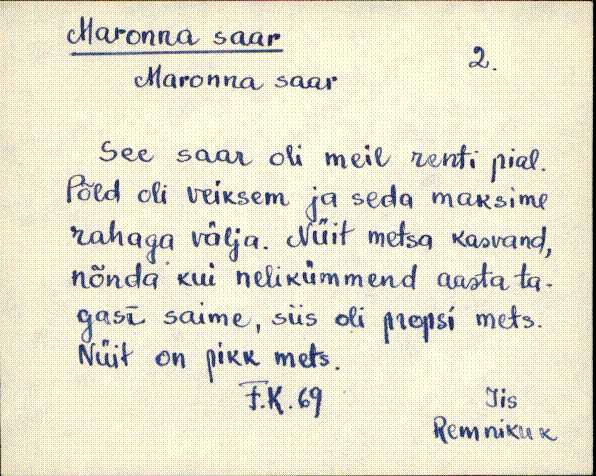 Maronna saar
2.
Maronna saar
See saar oli meil renti pial.
Põld oli veiksem ja seda maksime
rahaga välja. Nüit metsa kasvand,
nõnda kui nelikümmend aasta ta-
gasi saime, siis oli propsi mets.
Nüit on pikk mets.
F.K. 69
Iis
Remniku k